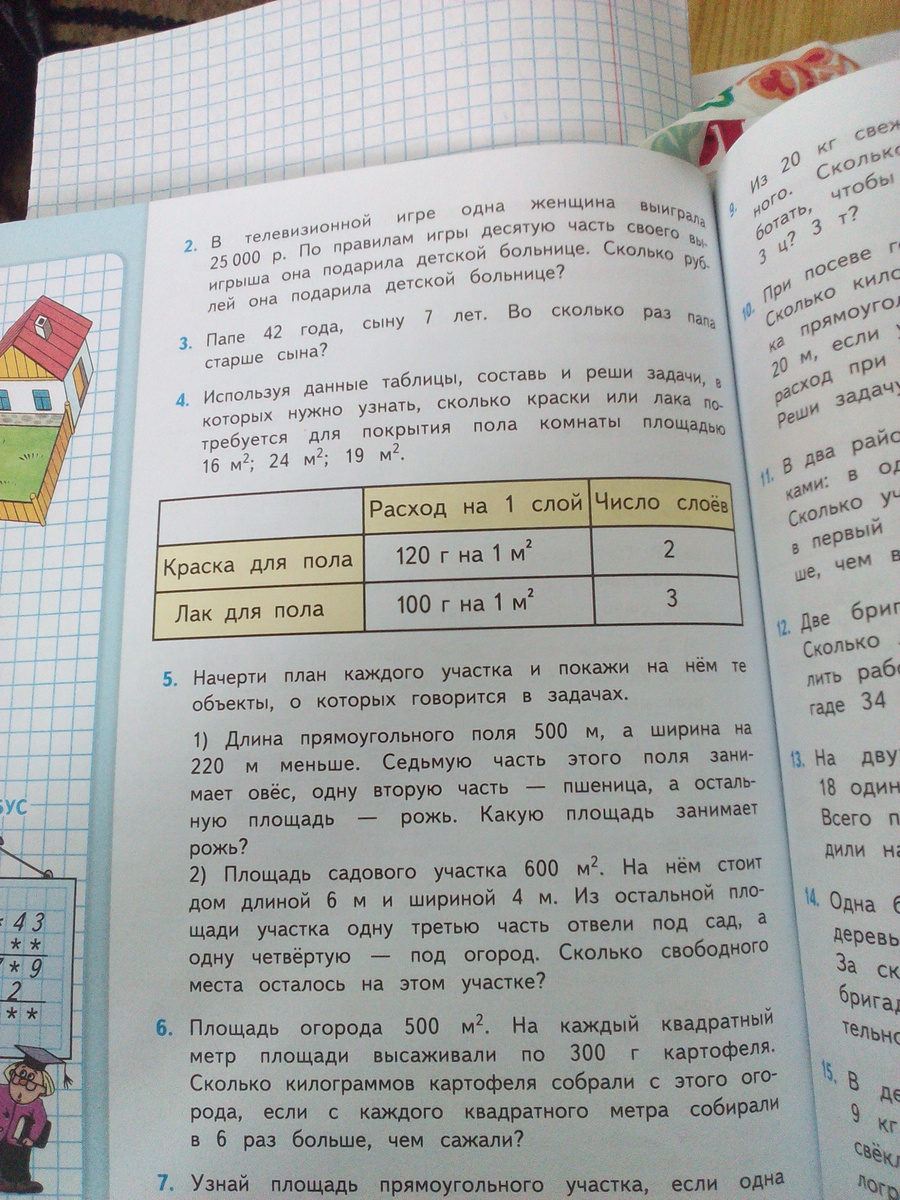 2. В телевизионной игре одна женщина выиграла
25 000 р. По правилам игры десятую часть своего вы-
игрыша она подарила детской больнице. Сколько руб-
лей она подарила детской больнице?
3. Папе 42 года, сыну 7 лет. Во сколько раз папа
старше сына?
4. Используя данные таблицы, составь и реши задачи, в
которых нужно узнать, сколько краски или лака по-
требуется для покрытия пола комнаты площадью
16 м²; 24 м²; 19 м².
Расход на 1 слой Число слоёв
Краска для пола 120 г на 1 м² 2
Лак для пола 100 г на 1 м² 3
5. Начерти план каждого участка и покажи на нём те
объекты, о которых говорится в задачах.
1) Длина прямоугольного поля 500 м, а ширина на
220 м меньше. Седьмую часть этого поля зани-
мает овёс, одну вторую часть — пшеница, а осталь-
ную площадь — рожь. Какую площадь занимает
рожь?
2) Площадь садового участка 600 м². На нём стоит
дом длиной 6 м и шириной 4 м. Из остальной пло-
щади участка одну третью часть отвели под сад, а
одну четвёртую — под огород. Сколько свободного
места осталось на этом участке?
6. Площадь огорода 500 м². На каждый квадратный
метр площади высаживали по 300 г картофеля.
Сколько килограммов картофеля собрали с этого ого-
рода, если с каждого квадратного метра собирали
в 6 раз больше, чем сажали?
7. Узнай площадь прямоугольного участка, если одна
БУС
* 4 3
* *
7 * 9
2
* *
9. Из 20 кг
ного.
ботать, чтобы
3 ц? 3 т?
10. При посеве
Сколько
ка
20 м, если
расход при
Реши
11. В два
ками: в
Сколько
в первый
ше, чем
12. Две
Сколько
лить
гаде 34
13. На
18
Всего
дили
14. Одна
За
15. В
9 кг